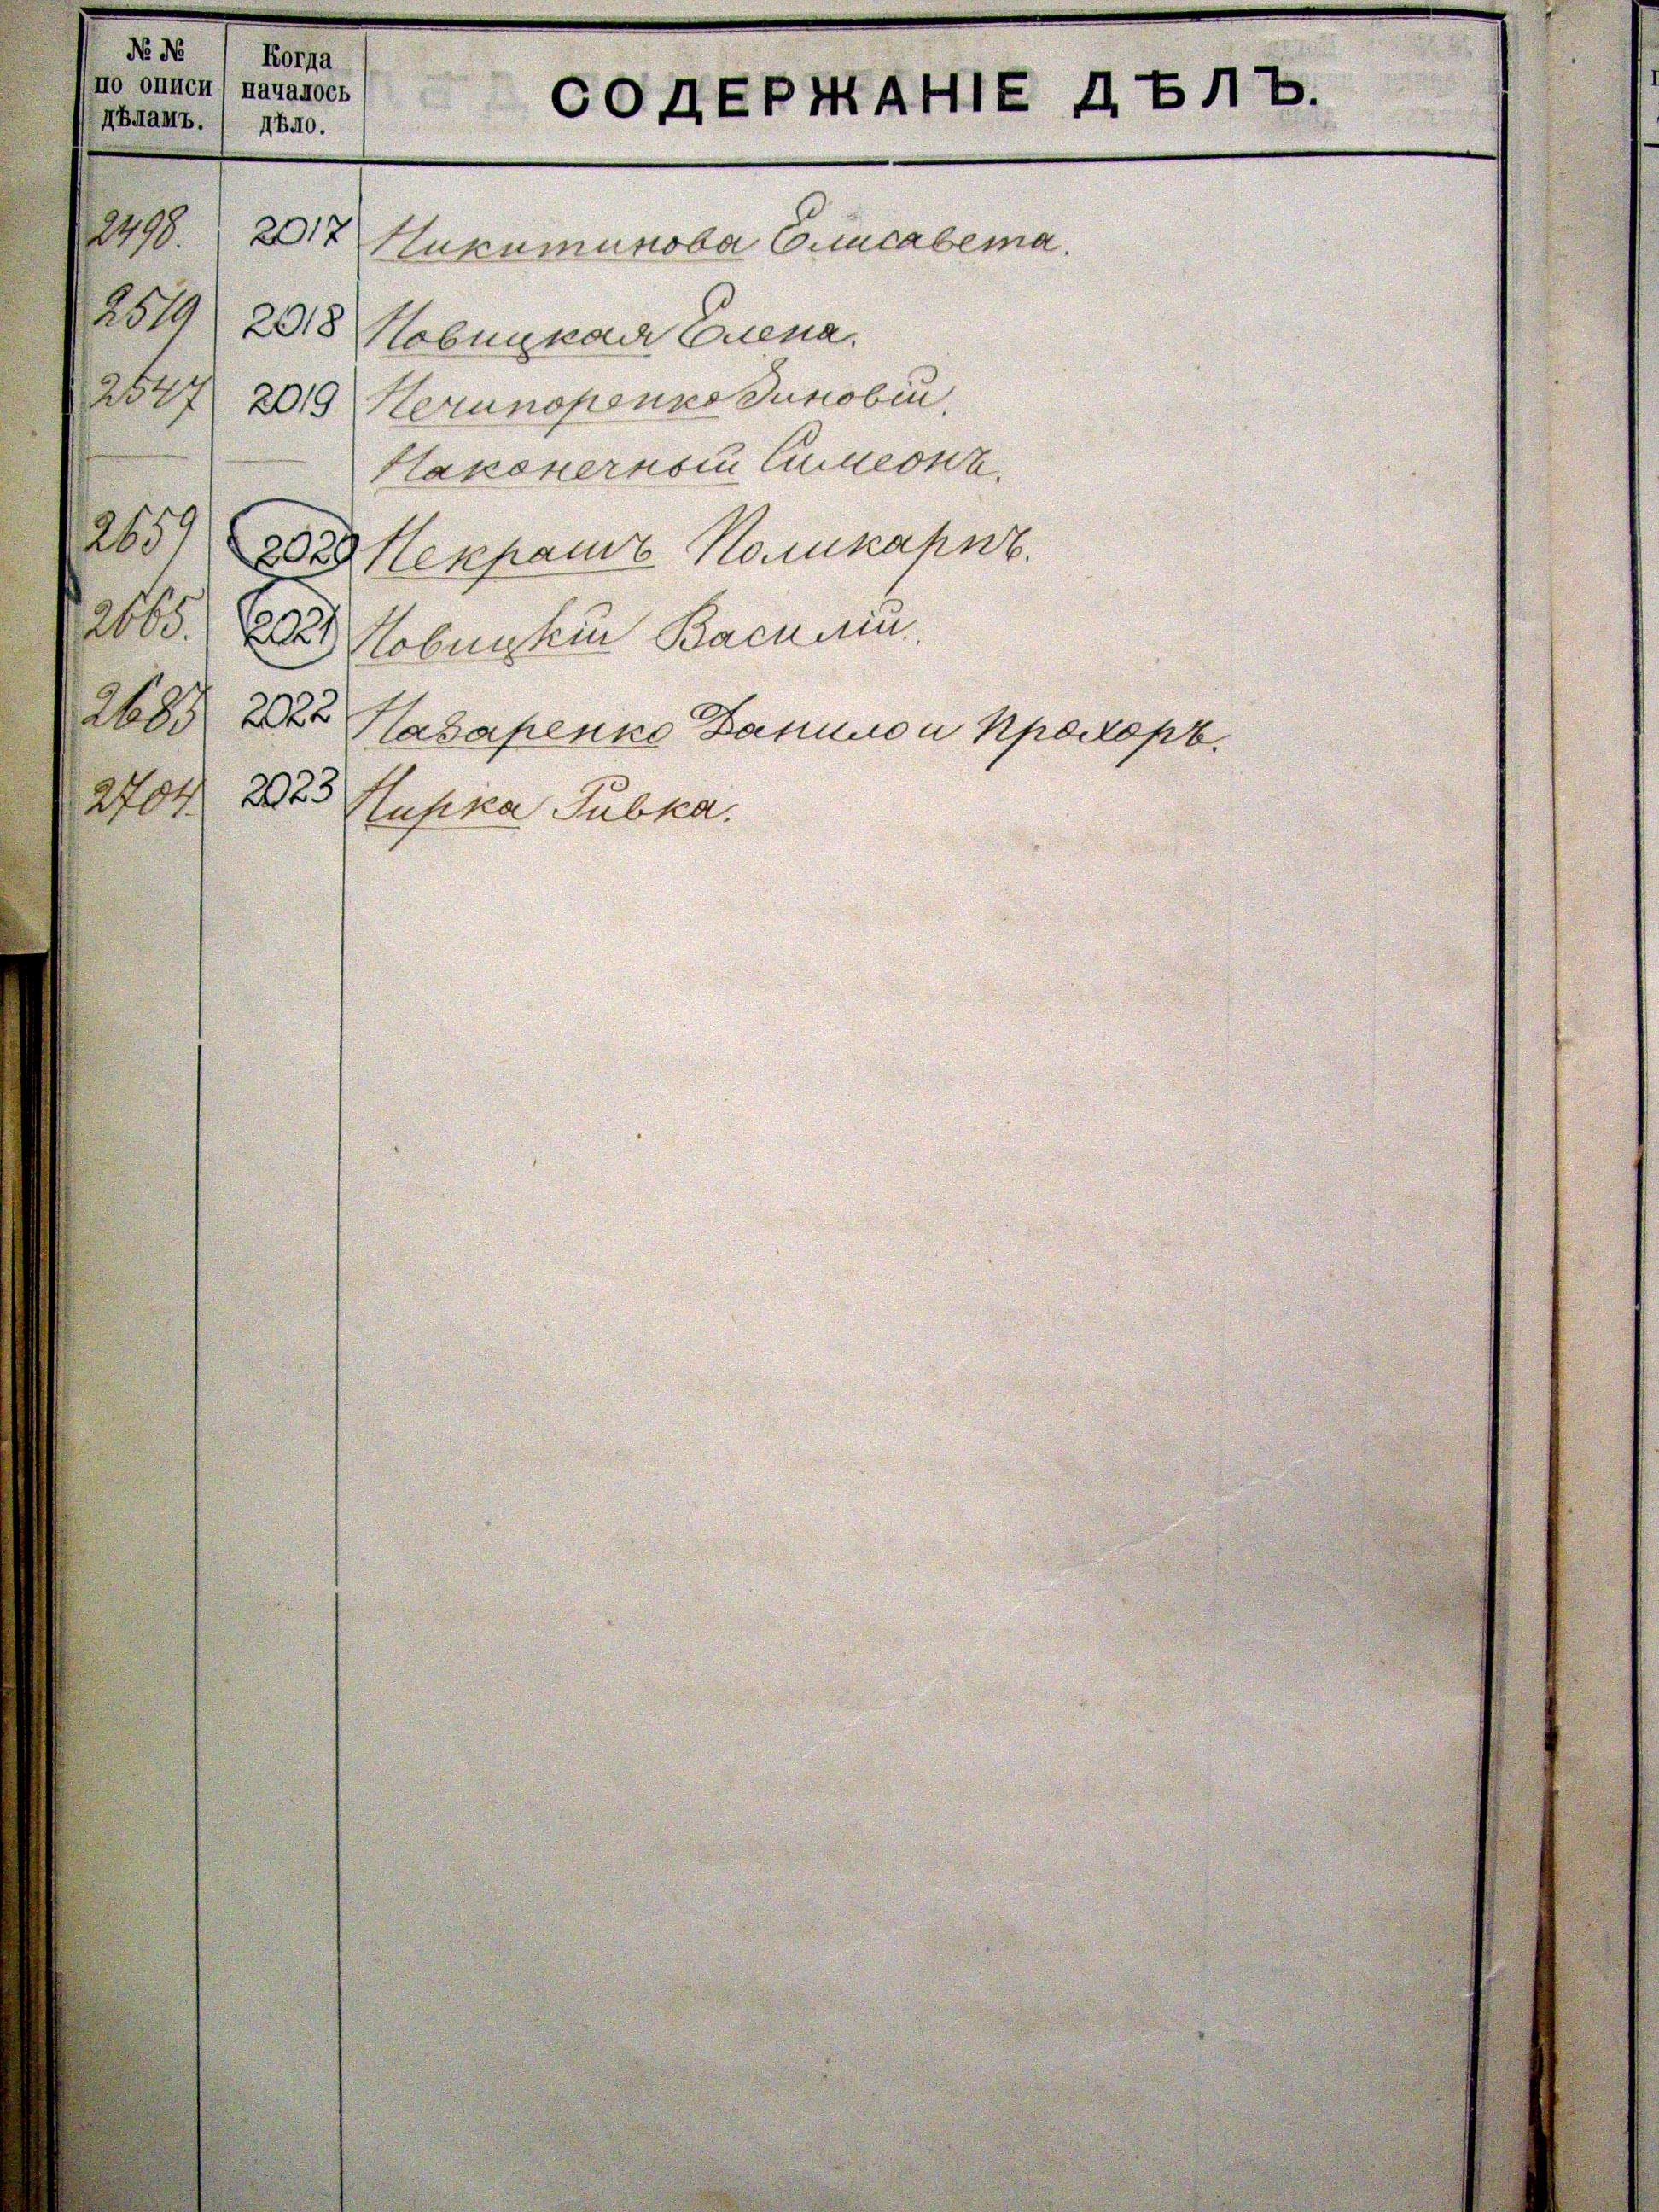 № № по описи дѣламъ.
Когда началось дѣло.
СОДЕРЖАНІЕ ДѢЛЪ.
2498. 2017 Никитинова Елисавета.
2519 2018 Новицкая Елена.
2547 2019 Нечипоренко Зиновій.
Наконечный Симеонъ.
2659 2020 Некрашъ Поликарпъ.
2665. 2021 Новицкій Василій.
2683 2022 Назаренко Данило и Прохоръ.
2704. 2023 Нирка Ривка.